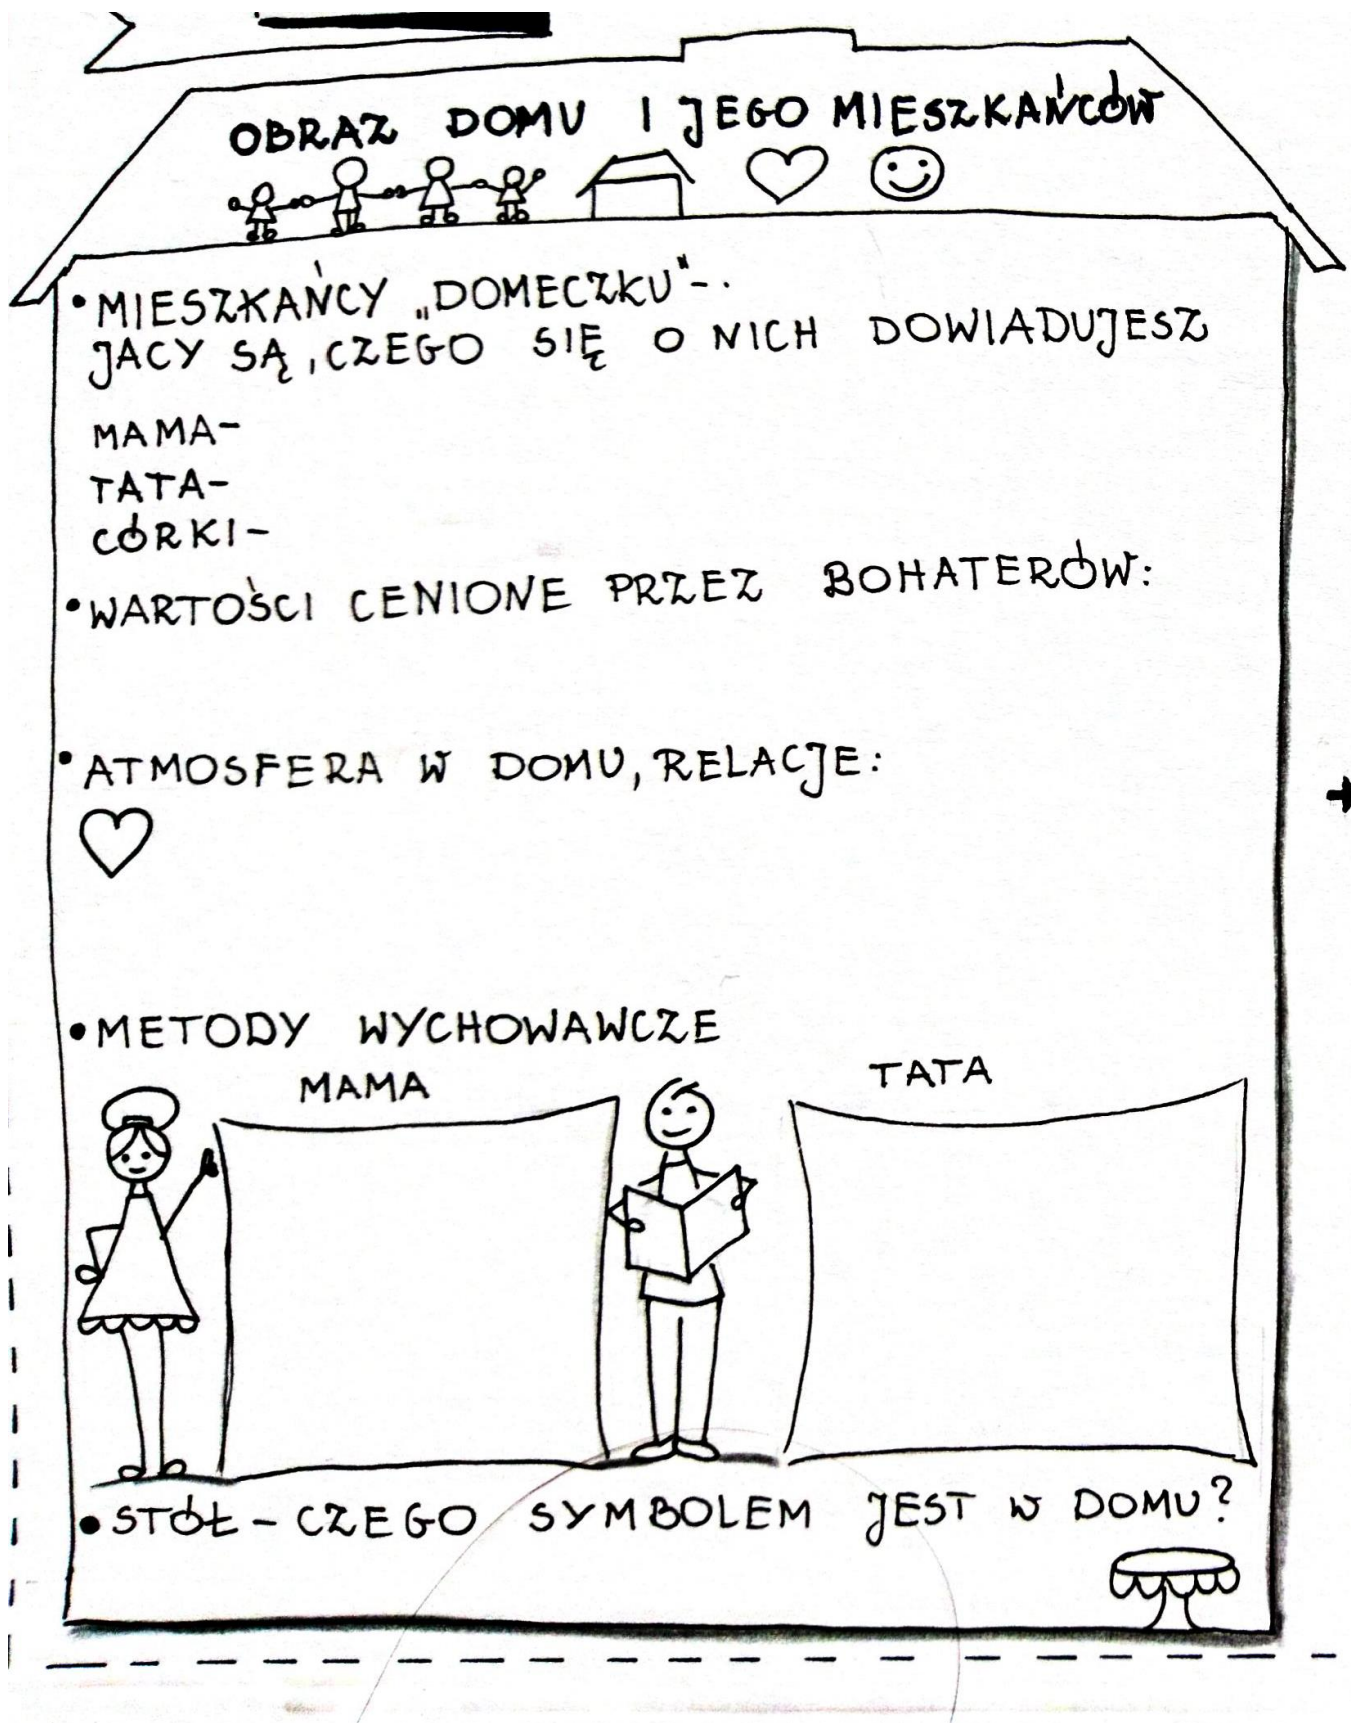 OBRAZ DOMU I JEGO MIESZKAŃCÓW
• MIESZKAŃCY „DOMECZKU" - .
JACY SĄ, CZEGO SIĘ O NICH DOWIADUJESZ
MAMA-
TATA-
CÓRKI-
• WARTOŚCI CENIONE PRZEZ BOHATERÓW:
• ATMOSFERA W DOMU, RELACJE:
• METODY WYCHOWAWCZE
MAMA
TATA
• STÓŁ - CZEGO SYMBOLEM JEST W DOMU?